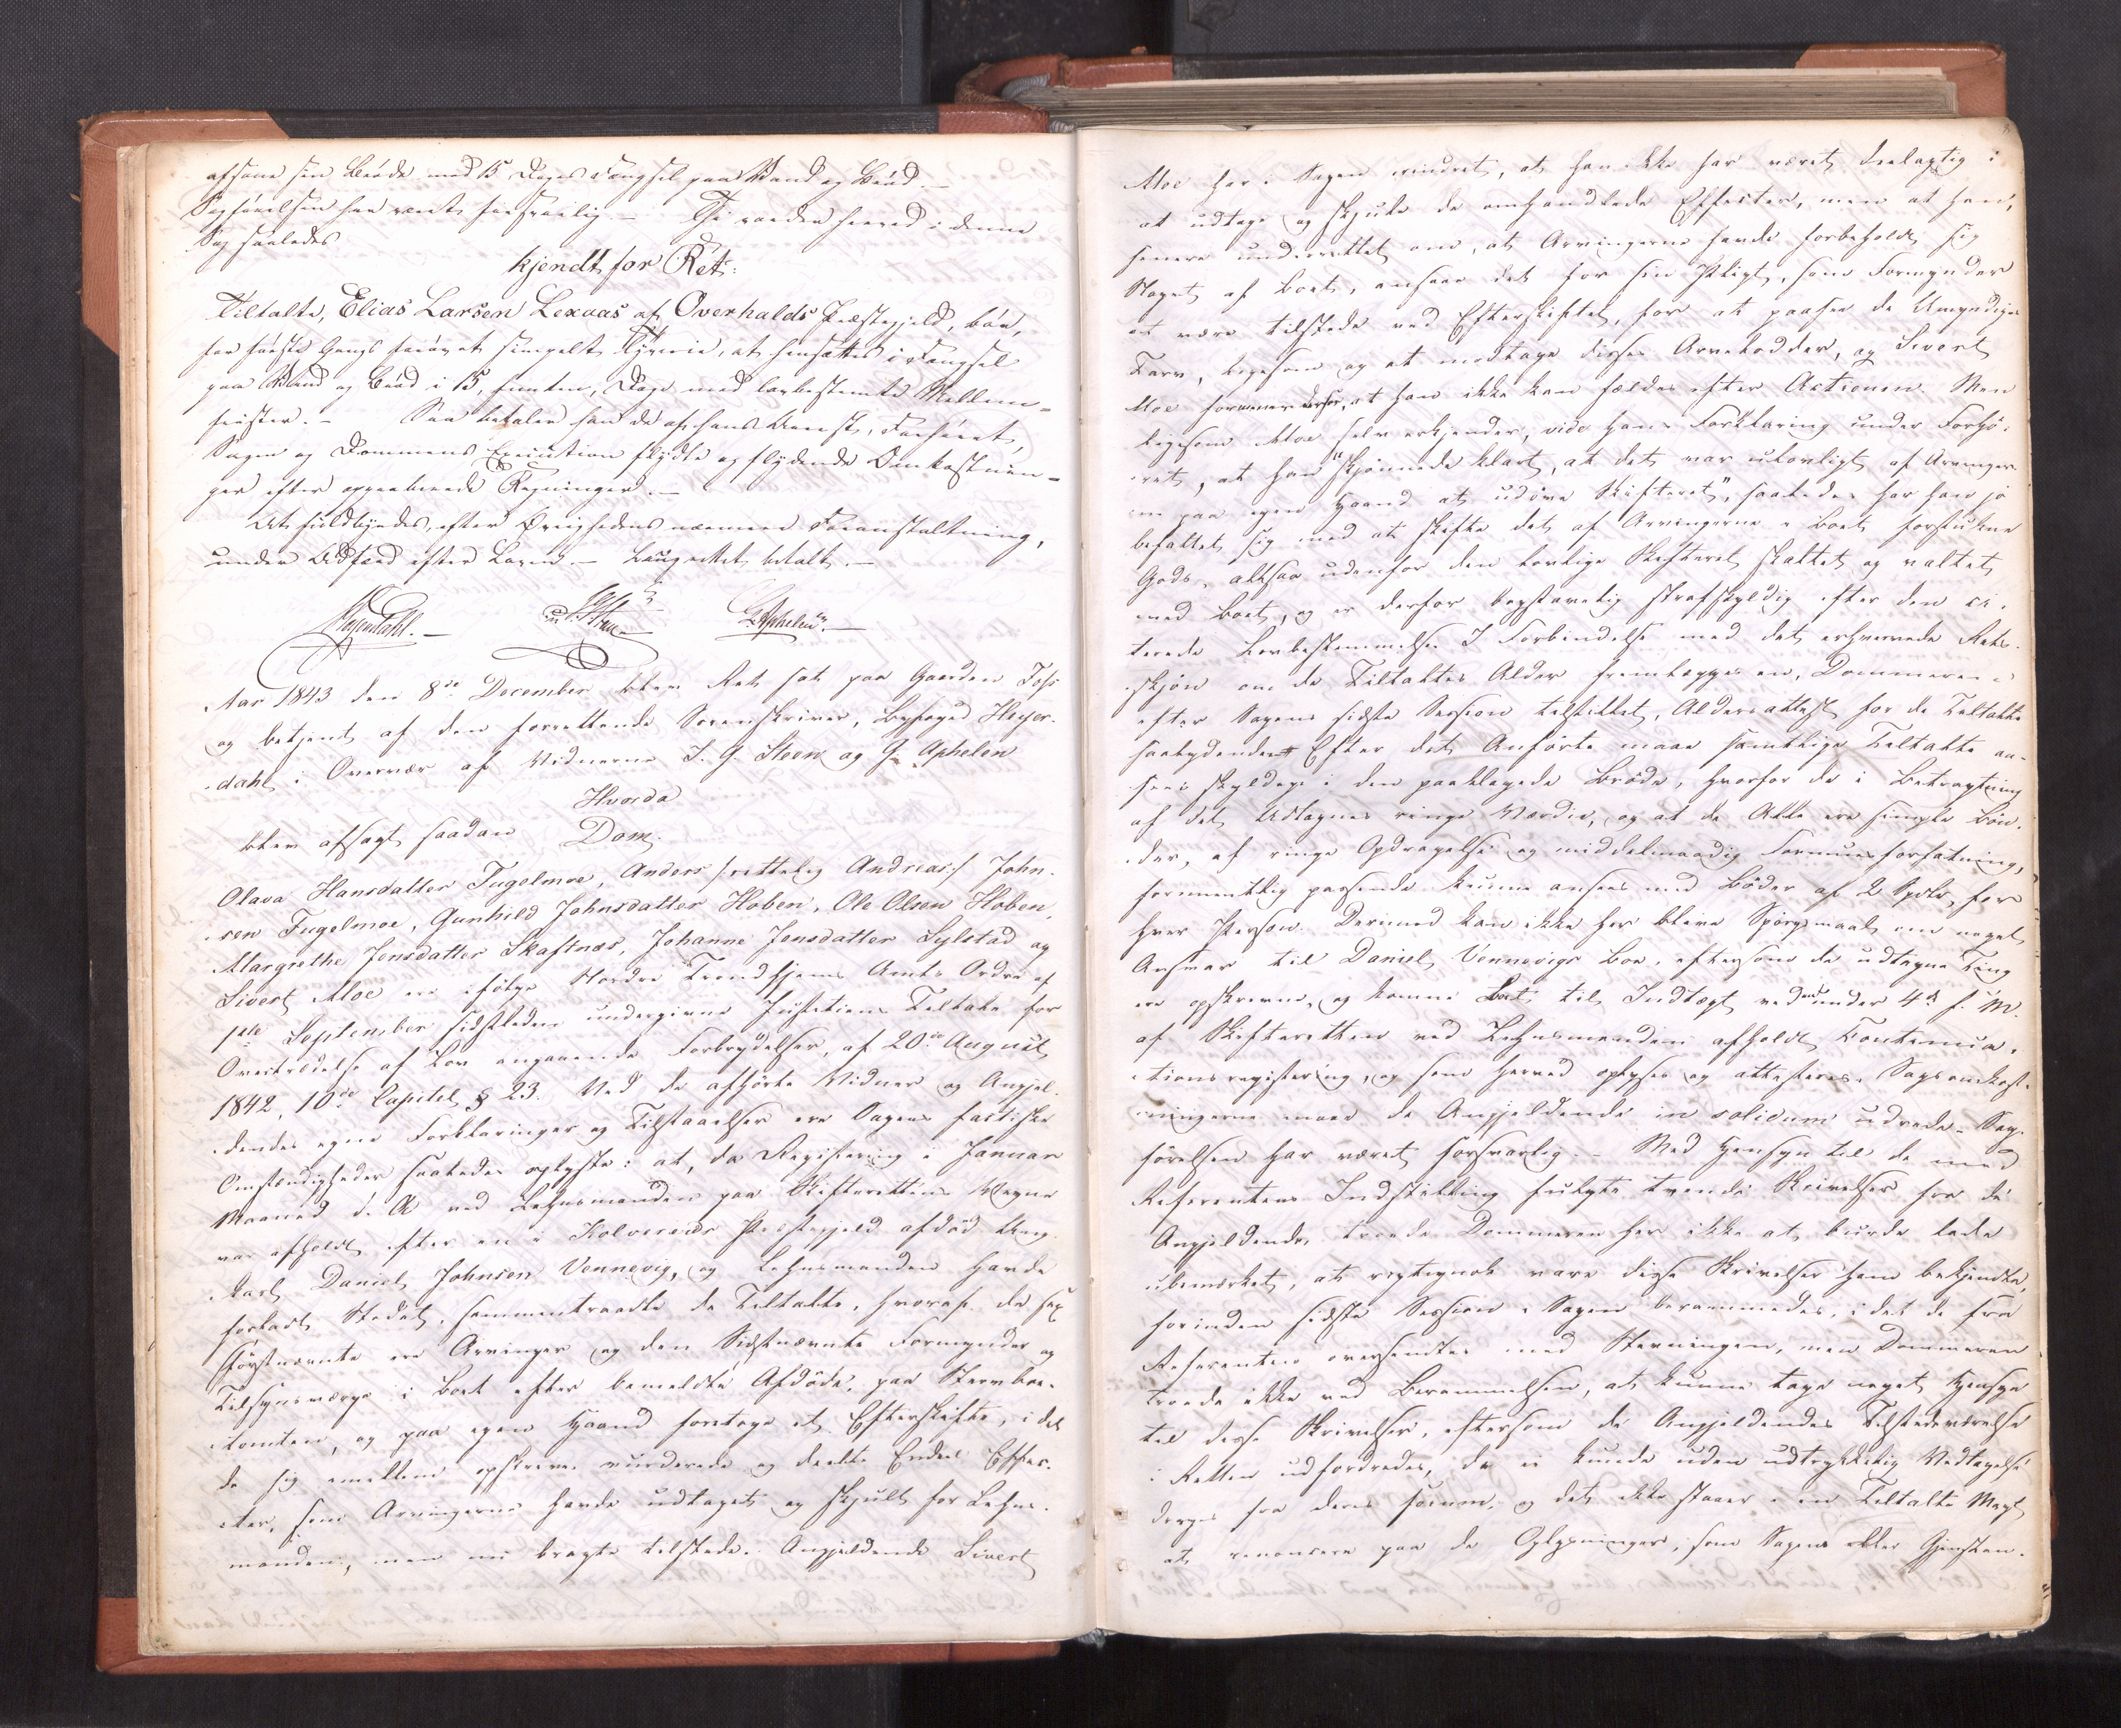 afsone sin Brøde med 15 Dages Fængsel paa Vand og Brød. –
Sagførelsen har været forsvarlig. – Thi vorder herved i denne
Sag saaledes
kjendt for Ret:
Tiltalte, Elias Larsen Lexaas af Overhalds Præstegjeld, bør,
for første Gangs forøvet simpelt Tyverie, at hensættes i Fængsel
paa Vand og Brød i 15, femten, Dage med lovbestemte Mellem-
frister. – Saa betaler han de af hans Arrest, Forhøret,
Sagen og Dommens Execution flydte og flydende Omkostnin-
ger efter oppebærende Regninger. –
At fuldbyrdes, efter Øvrighedens nærmere Foranstaltning,
under Adfærd efter Loven. – Laugrettet betalt. –
Heyerdahl. – J. G. Steen G. Aphelen. –
Aar 1843 den 8de December blev Ret sat paa Gaarden
og betjent af den forrettende Sorenskriver, Byfoged Heyer-
dahl i Overvær af Vidnerne J. G. Steen og G. Aphelen
Hvorda
blev afsagt saadan Dom.
Olava Hansdatter Fugelmoe, Anders /: rettelig Andreas :/ John-
sen Fugelmoe, Gunhild Johnsdatter Hoben, Ole Olsen Hoben,
Margrethe Jensdatter Skaftnæs, Johanne Jensdatter Sylstad og
Sivert Moe ere ifølge Nordre Trondhjems Amts Ordre af
1ste September sidstleden undergivne Justitiens Tiltale for
Overtrædelse af Lov angaaende Forbrydelser, af 20de August
1842, 10de Capitel § 23. Ved de afhørte Vidner og Angjel-
dendes egne Forklaringer og Tilstaaelser ere Sagens factiske
Omstændigheder saaledes oplyste: at, da Registering i Januar
Maaned d. A. ved Lehnsmanden paa Skifterettens Vegne
var afholdt efter en i Kolvereids Præstegjeld afdød Ung-
karl Daniel Johnsen Vennevig, og Lehnsmanden havde
forladt Stedet, sammentraadte de Tiltalte, hvoraf de sex
førstnævnte ere Arvinger og den Sidstnævnte Formynder og
Tilsynsværge i Boet efter bemeldte Afdøde, paa Stervboe-
tomten, og paa egen Haand foretoge et Efterskifte, i det
de sig imellem opskreve vurderede og deelte Endeel Effec-
ter, som Arvingerne havde udtaget og skjult for Lehns-
manden, men nu bragte tilstede. Angjeldende Sivert
Moe har i Sagen erindret, at han ikke har været deelagtig i
at udtage og skjule de omhandlede Effecter, men at han,
senere underrettet om, at Arvingerne havde forbeholdt sig
Noget af Boet, ansaae det for sin Pligt, som Formynder
at være tilstede ved Efterskiftet, for at paasee de Umyndiges
Tarv, ligesom og at modtage disses Arvelodder, og Sivert
Moe formener derfor, at han ikke kan fældes efter Actionen. Men
ligesom Moe selv erkjender, vide hans Forklaring under Forhø-
ret, at han "skjønnede klart, at det var ulovligt af Arvinger-
ne paa egen Haand at udøve Skifteret", saaledes har han jo
befattet sig med at skifte det af Arvingerne i Boet forstukne
Gods, altsaa udenfor den lovlige Skifteret skaltet og valtet
med Boet, og er derfor bogstavelig strafskyldig efter den ci-
terede Lovbestemmelse. I Forbindelse med det erhvervede Rets-
skjøn om de Tiltaltes Alder fremlægges en, Dommeren
efter Sagens sidste Session tilstillet, Aldersattest for de Tiltalte
saalydende: Efter det Anførte maae samtlige Tiltalte an-
sees skyldige i den paaklagede Brøde, hvorfor de i Betragtning
af det Udtagnes ringe Værdie, og at de Alle ere simple Bøn-
der, af ringe Opdragelse og middelmaadig Formuesforfatning,
formentlig passende kunne ansees med Bøder af 2 Spdlr. for
hver Person. Derimod kan ikke her blive Spørgsmaal om noget
Ansvar til Daniel Vennevigs Boe, eftersom de udtagne Ting
ere opskrevne og komne Boet til Indtægt ved under 4de f. M.
af Skifteretten ved Lehnsmanden afholdt Continua-
tionsregistering, og som herved oplyses og attesteres. Sagsomkost-
ningerne maae de Angjeldende in solidum udrede. Sag-
førelsen har været forsvarlig. – Med Hensyn til de med
Referentens Indstilling fulgte tvende Skrivelser fra de
Angjeldende, troede Dommeren her ikke at burde lade
ubemærket, at rigtignok vare disse Skrivelser ham bekjendte,
forinden sidste Session i Sagen berammedes, i det de fra
Referenten oversendtes med Stevningen, men Dommeren
troede ikke ved Berammelsen, at kunne tage noget Hensyn
til disse Skrivelser, eftersom de Angjeldendes Tilstedeværelse
i Retten udfordredes, da ei kunde uden udtrykkelig Vedtagelse
drages fra deres forum, og det ikke staaer i en Tiltalts Magt
at renoncere paa de Oplysninger, som Sagens eller Gjenstan-